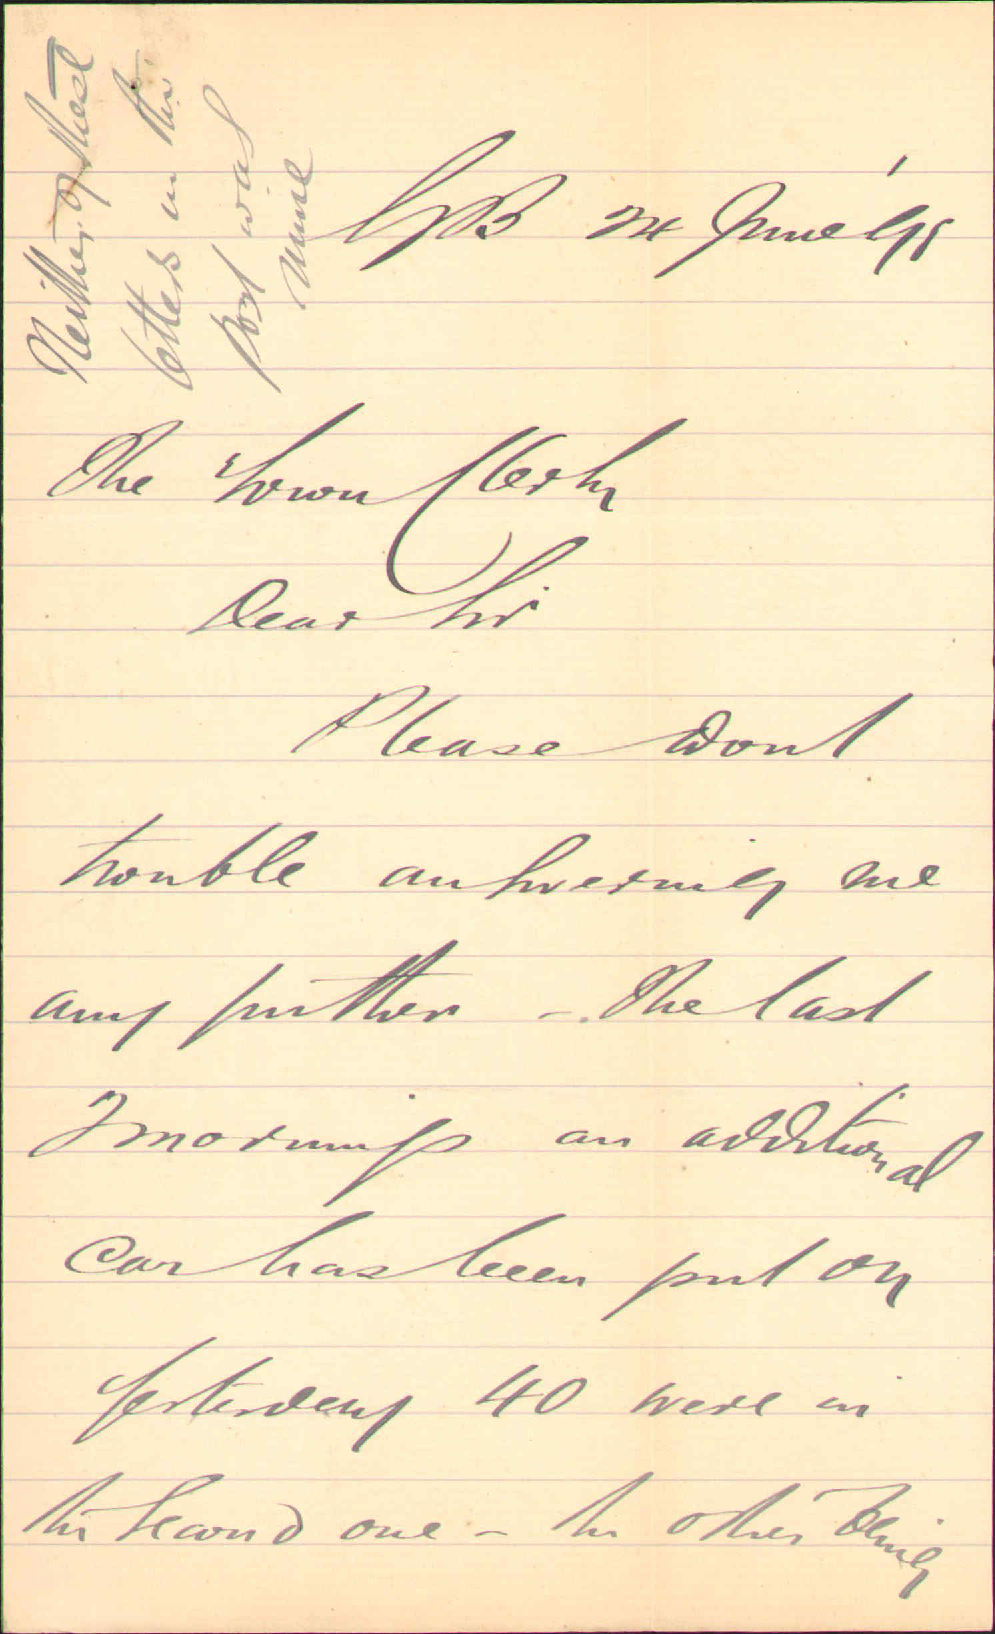 Neither of these
letters in the
Post was
mine
24 June
The Town Clerk
Dear Sir
Please dont
trouble answering me
any further - The last
2 mornings an additional
Car has been put on
yesterday 40 were in
the second one - the other being